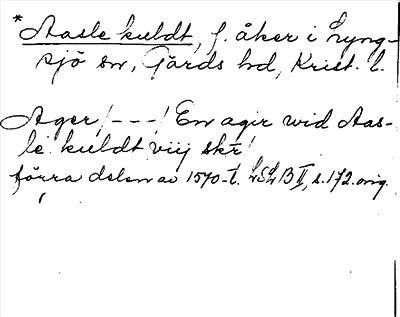 *Aasle kuldt, f. åker i Lyng-
sjö sn, Gärds hd, Krist. l.
Ager / - - - / En agir wid Aas-
le kuldt viij skr /
förra delen av 1570-t. LSLB II, s. 172. orig.